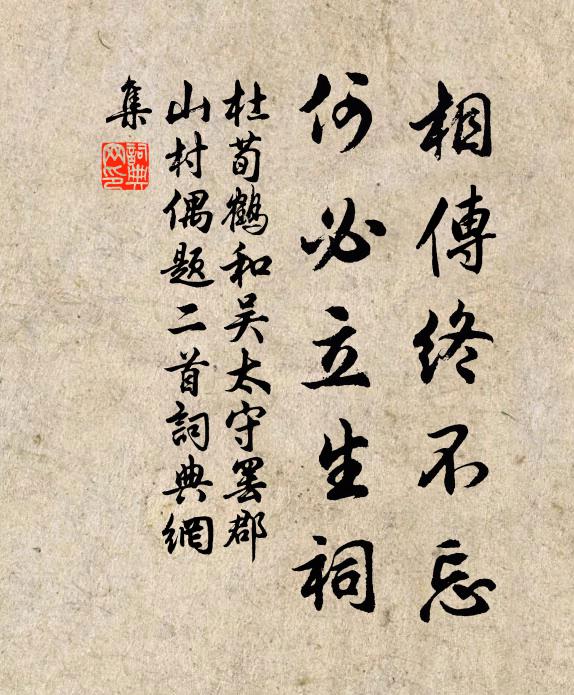 相傳終不忘
何必立生祠
杜荀鶴和吴太守罢郡
山村偶题二首詞典網
集
詞典
网印